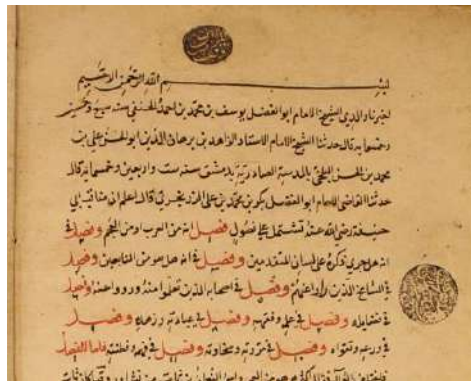 بسم الله الرحمن الرحيم
اخبرنا والدي الشيخ الامام ابو الفضل يوسف بن محمد بن احمد الحنفي سنة سبع وخمسين
وخمسمايه قال حدثنا الشيخ الامام الاستاد الزاهد بن برهان الدين ابو الحسن علي بن
محمد بن الحسن البلخي بالمدرسة الصادرية بدمشق سنة ست واربعين وخمسمايه قال
حدثنا القاضي الامام ابو الفضل بكر بن محمد بن علي الزرنجري قال اعلم ان مناقب ابي
حنيفة رضي الله عنه تشتمل على فصول فصل انه من العرب او من العجم وفصل في
انه هل جرى ذكره على لسان المتقدمين وفصل في انه هل هو من التابعين وفصل
في المشايخ الذين روى عنهم وفصل في اصحابه الذين تعلموا منه ورووا عنه وفصل
في فضايله وفصل في علمه وفقهه وفصل في عبادته وزهده وفصل
في ورعه وتقواه وفصل في مروته وسخاوته وفصل في فهمه وفطنته فاما الفصل